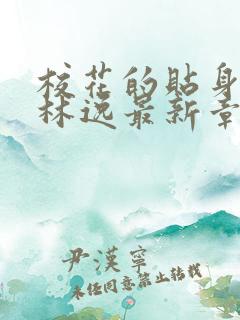 校花的贴身
林逸最新章
尹漢寧
未经同意禁止转载